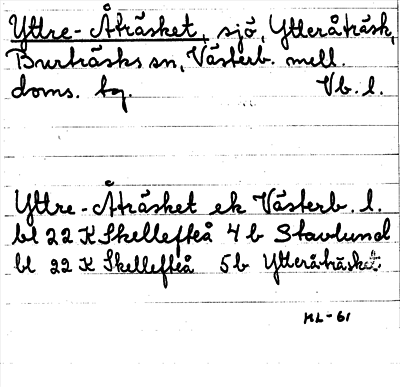 Yttre-Åträsket, sjö, Ytteråträsk,
Burträsks sn, Västerb. mell.
doms. tg. Vb. l.
Yttre-Åträsket ek Västerb. l.
bl 22 K Skellefteå 4 b Stavlund
bl 22 K Skellefteå 5 b Ytteråträsket
ML-61